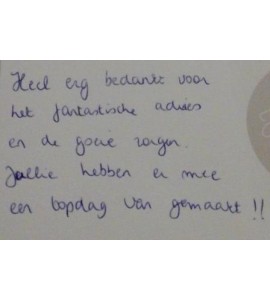 Heel erg bedankt voor
het fantastische advies
en de goeie zorgen.
Jullie hebben er mee
een topdag van gemaakt !!